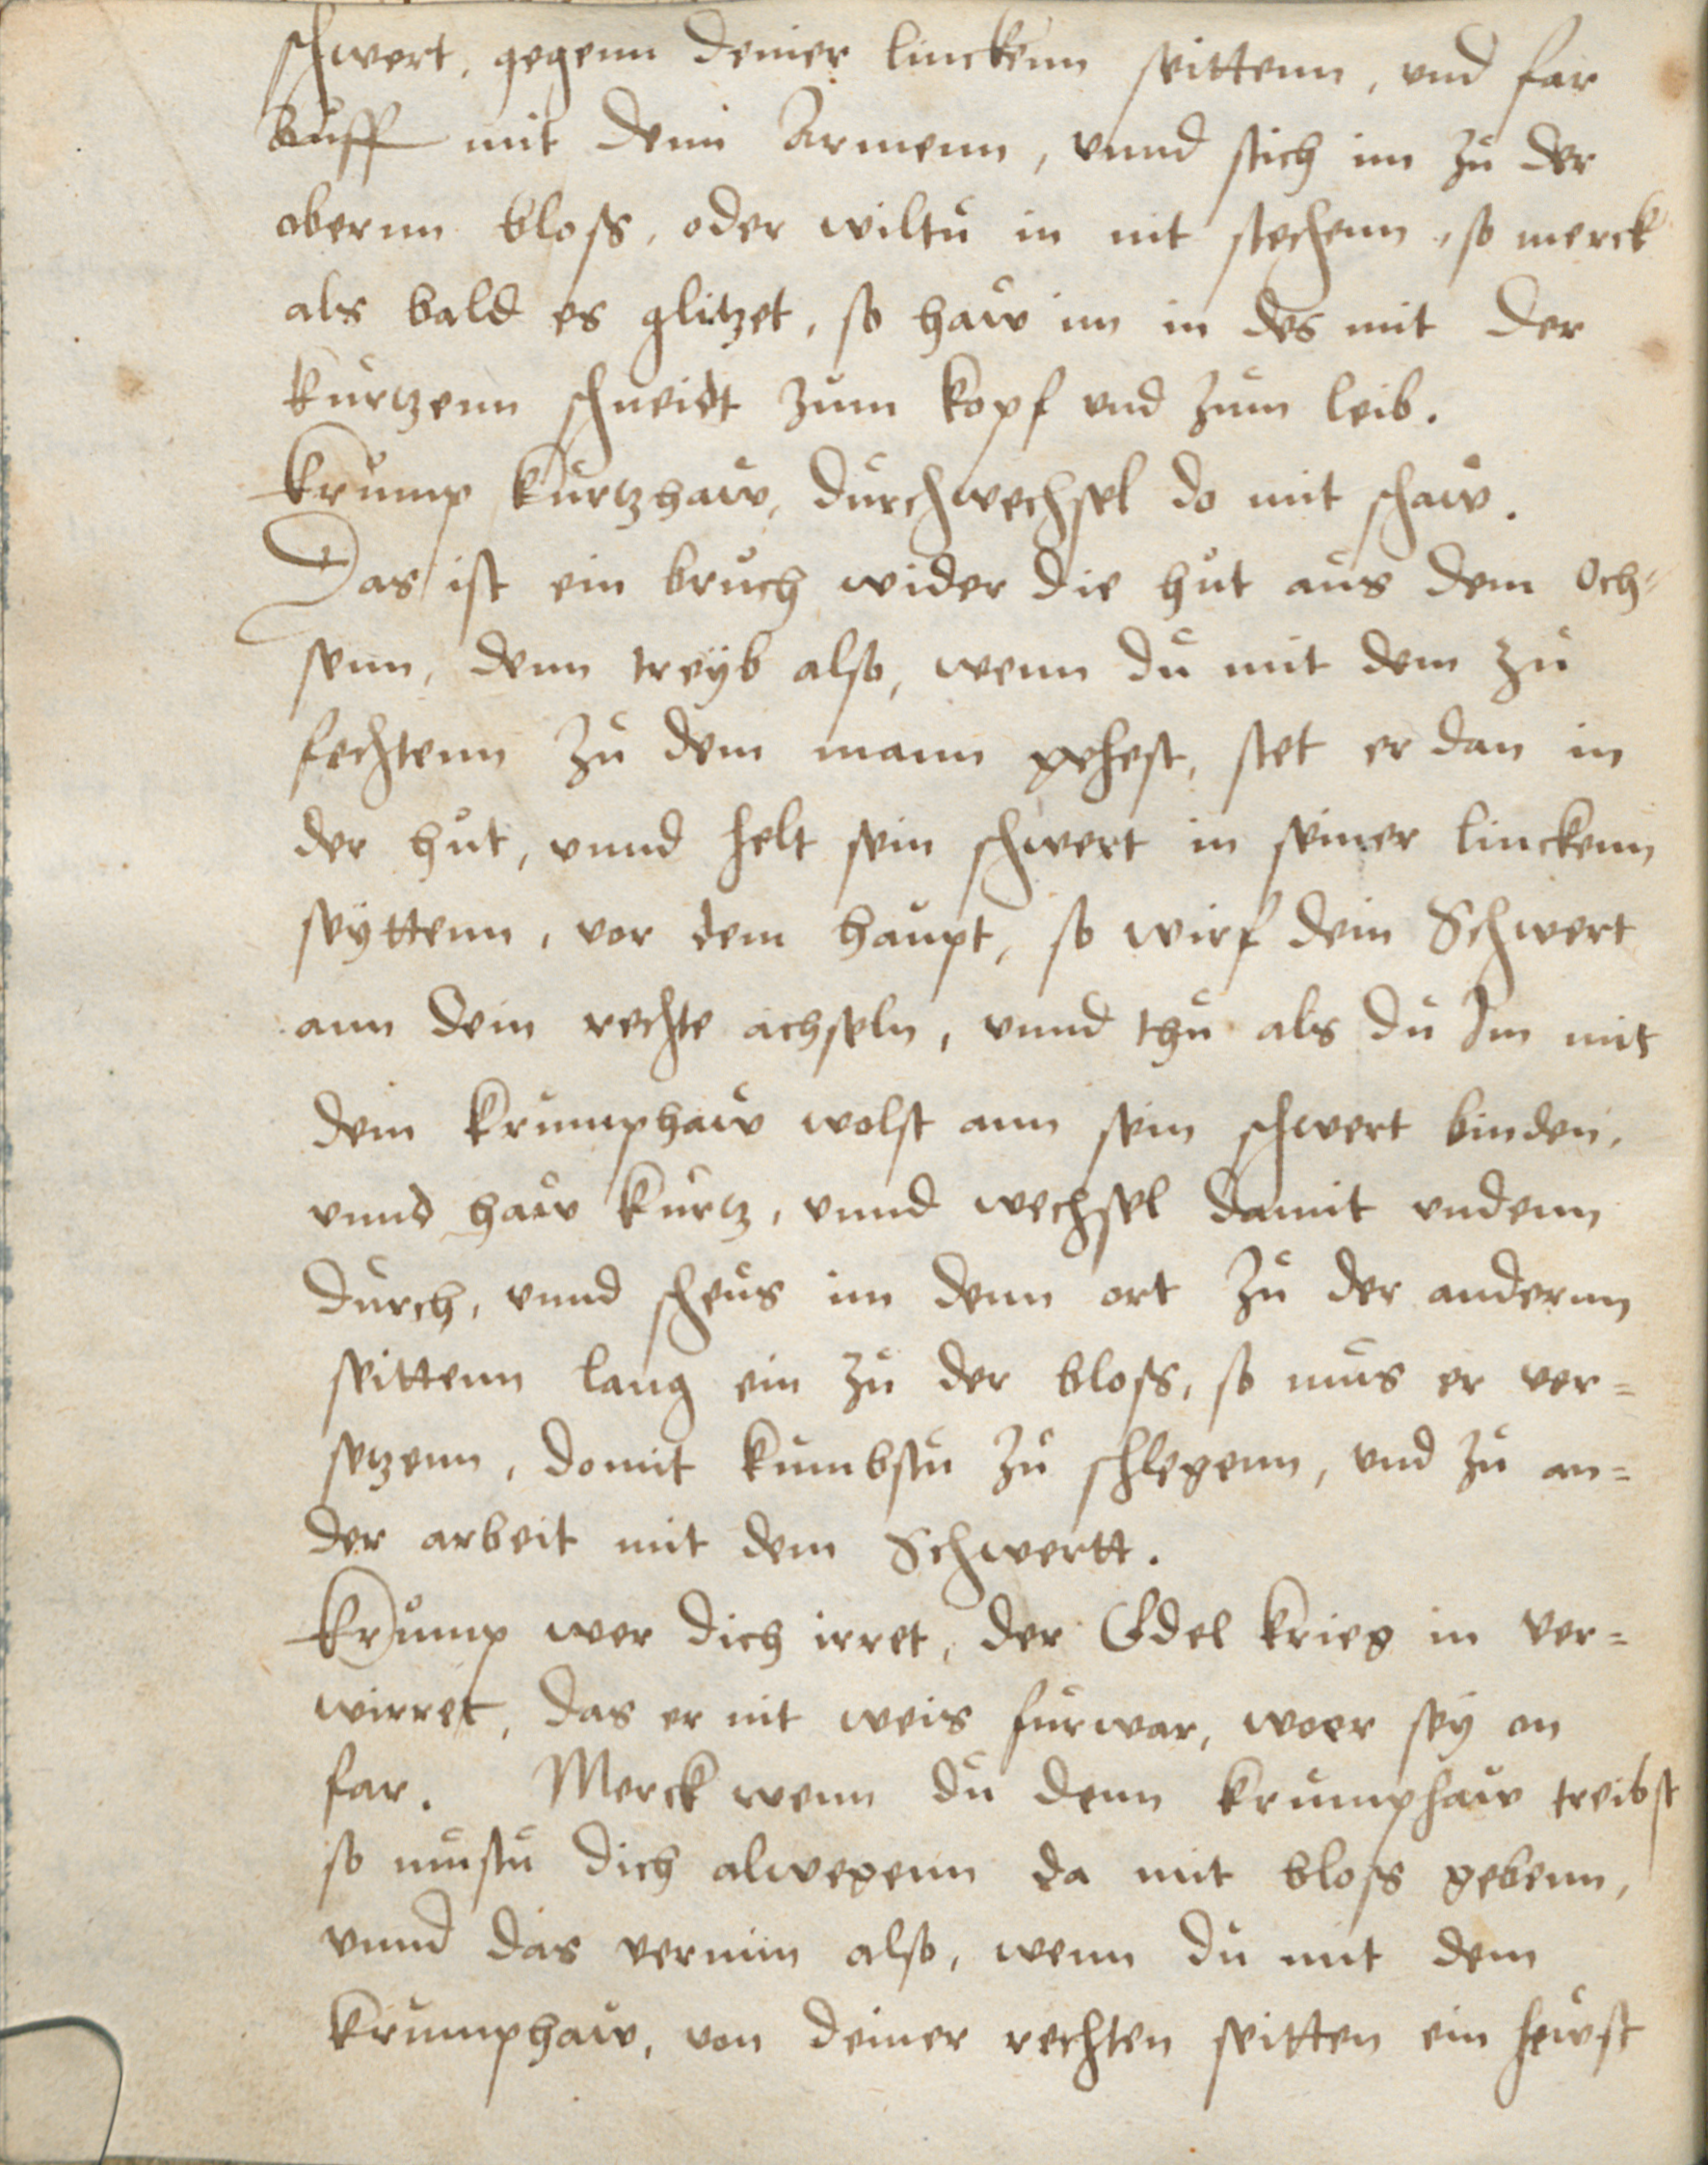 schwert, gegenn deiner linckenn seittenn, und far
auff mit denn Armenn, vnnd stich im zů der
obernn bloss, oder wiltů in nit stechenn, so merck
als bald es glitzet, so haw im in des mit der
kůrtzenn schneidt zům kopf vnd zům leib.
Krůmp kůrtzhaw, důrchwechsel do mit schaw.
Das ist ein brůch wider die hůt aůs dem Och=
senn, denn treÿb also, wenn dů mit dem zů
fechtenn zů dem mann gehest, stet er dan in
der hůt, vnnd helt sein schwert in seiner linckenn
seÿttenn, vor dem haůpt, so wirf dein Schwert
ann dein rechte achseln, vnnd thů als dů Im mit
dem krůmphaw wolst ann sein schwert binden,
vnnd haw kůrtz, vnnd wechsel damit vndenn
důrch, vnnd scheůs im denn ort zů der andernn
seittenn lang ein zů der bloss, so můs er ver=
setzenn, domit kůmbstů zů schlegenn, vnd zů an=
der arbeit mit dem Schwertt.
Krůmp wer dich irret, der Edel krieg in ver=
wirret, das er nit weis fůrwar, woer seÿ on
far. Merck wenn dů denn krůmphaw treibst
so můstů dich alwegenn da mit bloss gebenn,
vnnd das vernim also, wenn dů mit dem
krůmphaw, von deiner rechten seitten ein hewst